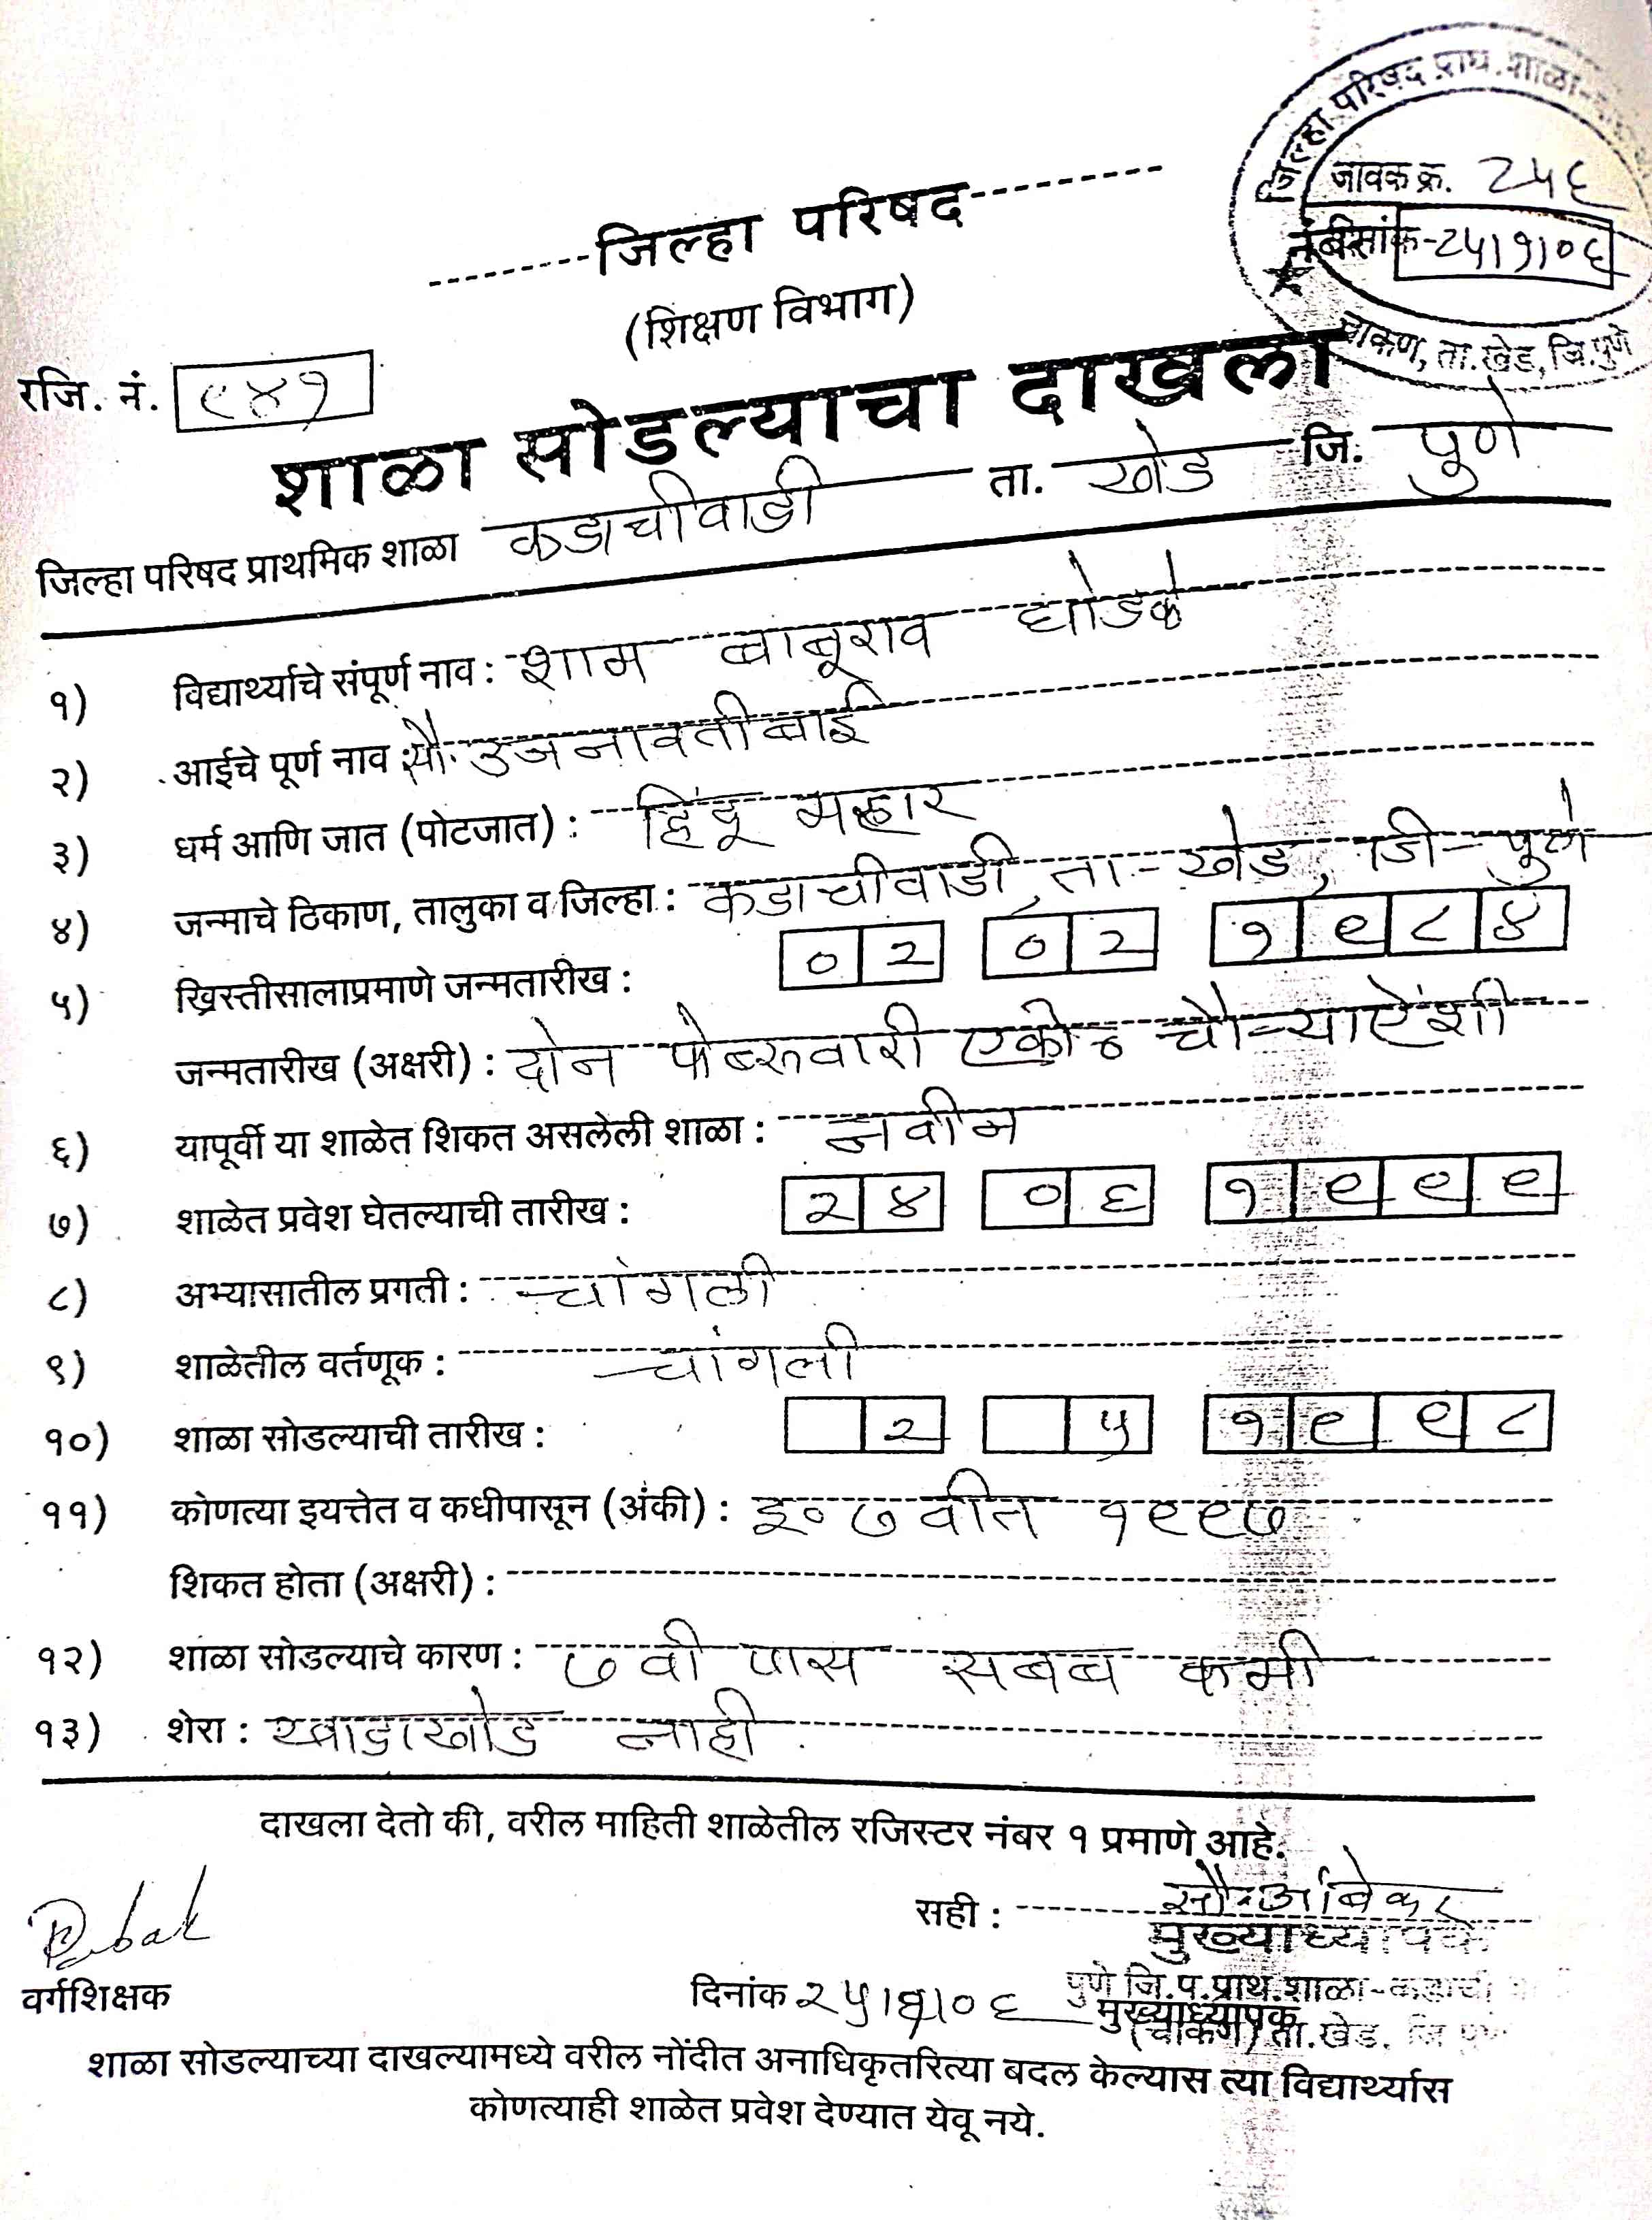 जिल्हा परिषद प्राथ. शाळा-
जावक क्र. २५६
२५।१।०६
चाकण, ता. खेड, जि. पुणे
जिल्हा परिषद
(शिक्षण विभाग)
रजि. नं. ९४१
शाळा सोडल्याचा दाखला
जिल्हा परिषद प्राथमिक शाळा कडाचीवाडी ता. खेड जि. पुणे
१) विद्यार्थ्याचे संपूर्ण नाव : शाम बाबूराव घोडके
२) आईचे पूर्ण नाव : सौ.
३) धर्म आणि जात (पोटजात) : हिंदू महार
४) जन्माचे ठिकाण, तालुका व जिल्हा : कडाचीवाडी, ता-खेड, जि-पुणे
५) ख्रिस्तीसालाप्रमाणे जन्मतारीख : ०२ ०२ १९८४
जन्मतारीख (अक्षरी) : दोन फेब्रुवारी चौऱ्याऐंशी
६) यापूर्वी या शाळेत शिकत असलेली शाळा : नवीन
७) शाळेत प्रवेश घेतल्याची तारीख : २४ ०६ १९९९
८) अभ्यासातील प्रगती : चांगली
९) शाळेतील वर्तणूक : चांगली
१०) शाळा सोडल्याची तारीख : २ ५ १९९८
११) कोणत्या इयत्तेत व कधीपासून (अंकी) : इ० ७ वीत १९९७
शिकत होता (अक्षरी) :
१२) शाळा सोडल्याचे कारण : ७ वी पास सबब कमी
१३) शेरा : खाडाखोड नाही
दाखला देतो की, वरील माहिती शाळेतील रजिस्टर नंबर १ प्रमाणे आहे.
सही : सौ. आंबेकर
मुख्याध्यापक
वर्गशिक्षक
दिनांक २५।१।०६
पुणे जि.प.प्राथ.शाळा-कडाची
मुख्याध्यापक
(चाकण) ता.खेड. जि पुणे
शाळा सोडल्याच्या दाखल्यामध्ये वरील नोंदीत अनाधिकृतरित्या बदल केल्यास त्या विद्यार्थ्यास
कोणत्याही शाळेत प्रवेश देण्यात येवू नये.